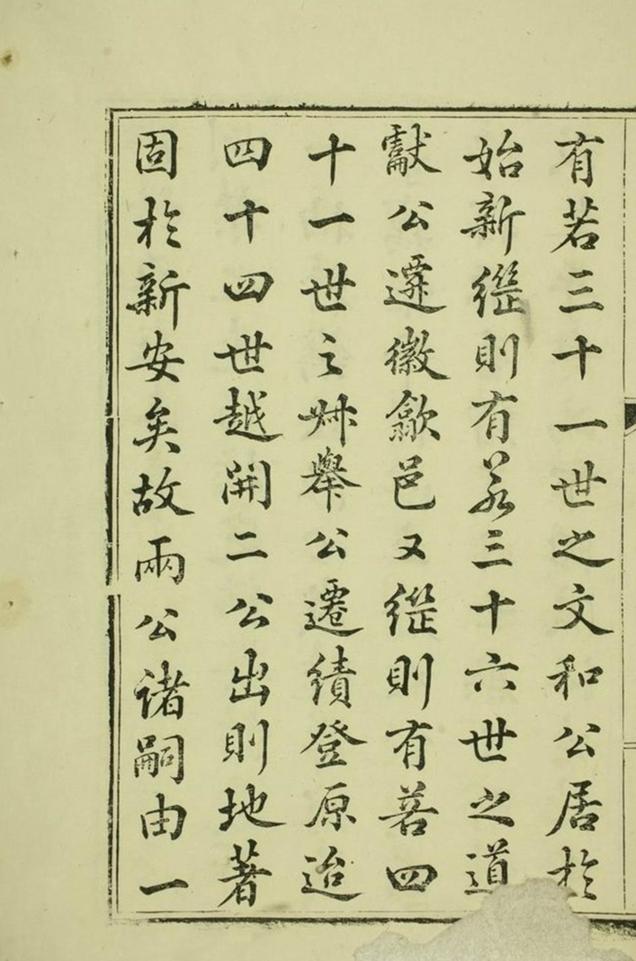 有若三十一世之文和公居於
始新繼則有若三十六世之道
獻公遷徽歙邑又繼則有若四
十一世之叔舉公遷績登原迨
四十四世越開二公出則地著
固於新安矣故兩公諸嗣由一